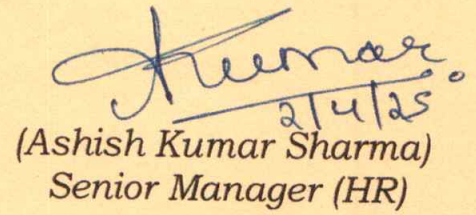 Kumar
2/4/25
(Ashish Kumar Sharma)
Senior Manager (HR)